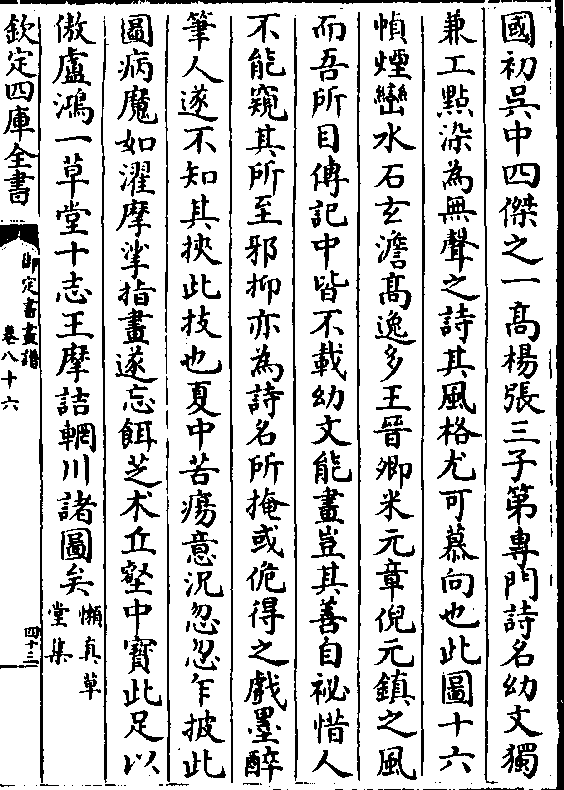 國初吳中四傑之一髙楊張三子第專門詩名幼文獨
兼工㸃染為無聲之詩其風格尤可慕向也此圖十六
幀煙巒水石玄澹髙逸多王晉卿米元章倪元鎮之風
而吾所目傳記中皆不載幼文能畫豈其善自祕惜人
不能窺其所至邪抑亦為詩名所掩或佹得之戲墨醉
筆人遂不知其挾此技也夏中苦瘍意況忽忽乍披此
圖病魔如濯摩挲指畫遂忘餌芝术丘壑中寳此足以
傲盧鴻一草堂十志王摩詰輞川諸圖矣
懶真草
堂集
欽定四庫全書
御定書畫譜
卷八十六
四十三